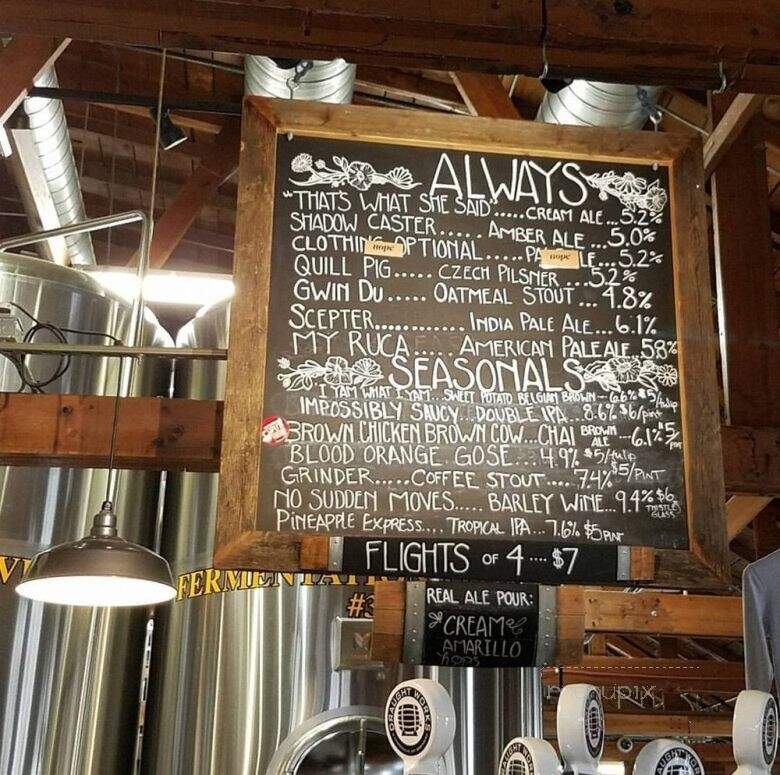 ALWAYS
"THATS WHAT SHE SAID".....CREAM ALE...5.2%
SHADOW CASTER..... AMBER ALE...5.0%
CLOTHING OPTIONAL.....PALE...5.2%
nope nope
QUILL PIG..... CZECH PILSNER...5.2%
GWIN DU..... OATMEAL STOUT...4.8%
SCEPTER............ INDIA PALE ALE...6.1%
MY RUCA..... AMERICAN PALE ALE..5.8%
SEASONALS
I YAM WHAT I YAM...SWEET POTATO BELGIAN BROWN-6.6% $5/tulip
IMPOSSIBLY SAUCY..DOUBLE IPA...8.6% $6/pint
BROWN CHICKEN BROWN COW...CHAI BROWN ALE -6.1% $5/
BLOOD ORANGE GOSE...4.9% $5/tulip
GRINDER.....COFFEE STOUT....7.4% $5/PINT
NO SUDDEN MOVES..... BARLEY WINE...9.4% $6 THISTLE GLASS
PINEAPPLE EXPRESS.... TROPICAL IPA...7.6% $5 PINT
FLIGHTS OF 4 .... $7
FERMENTATION
#3
REAL ALE POUR:
CREAM
AMARILLO
HOPS
DRAUGHT WORKS